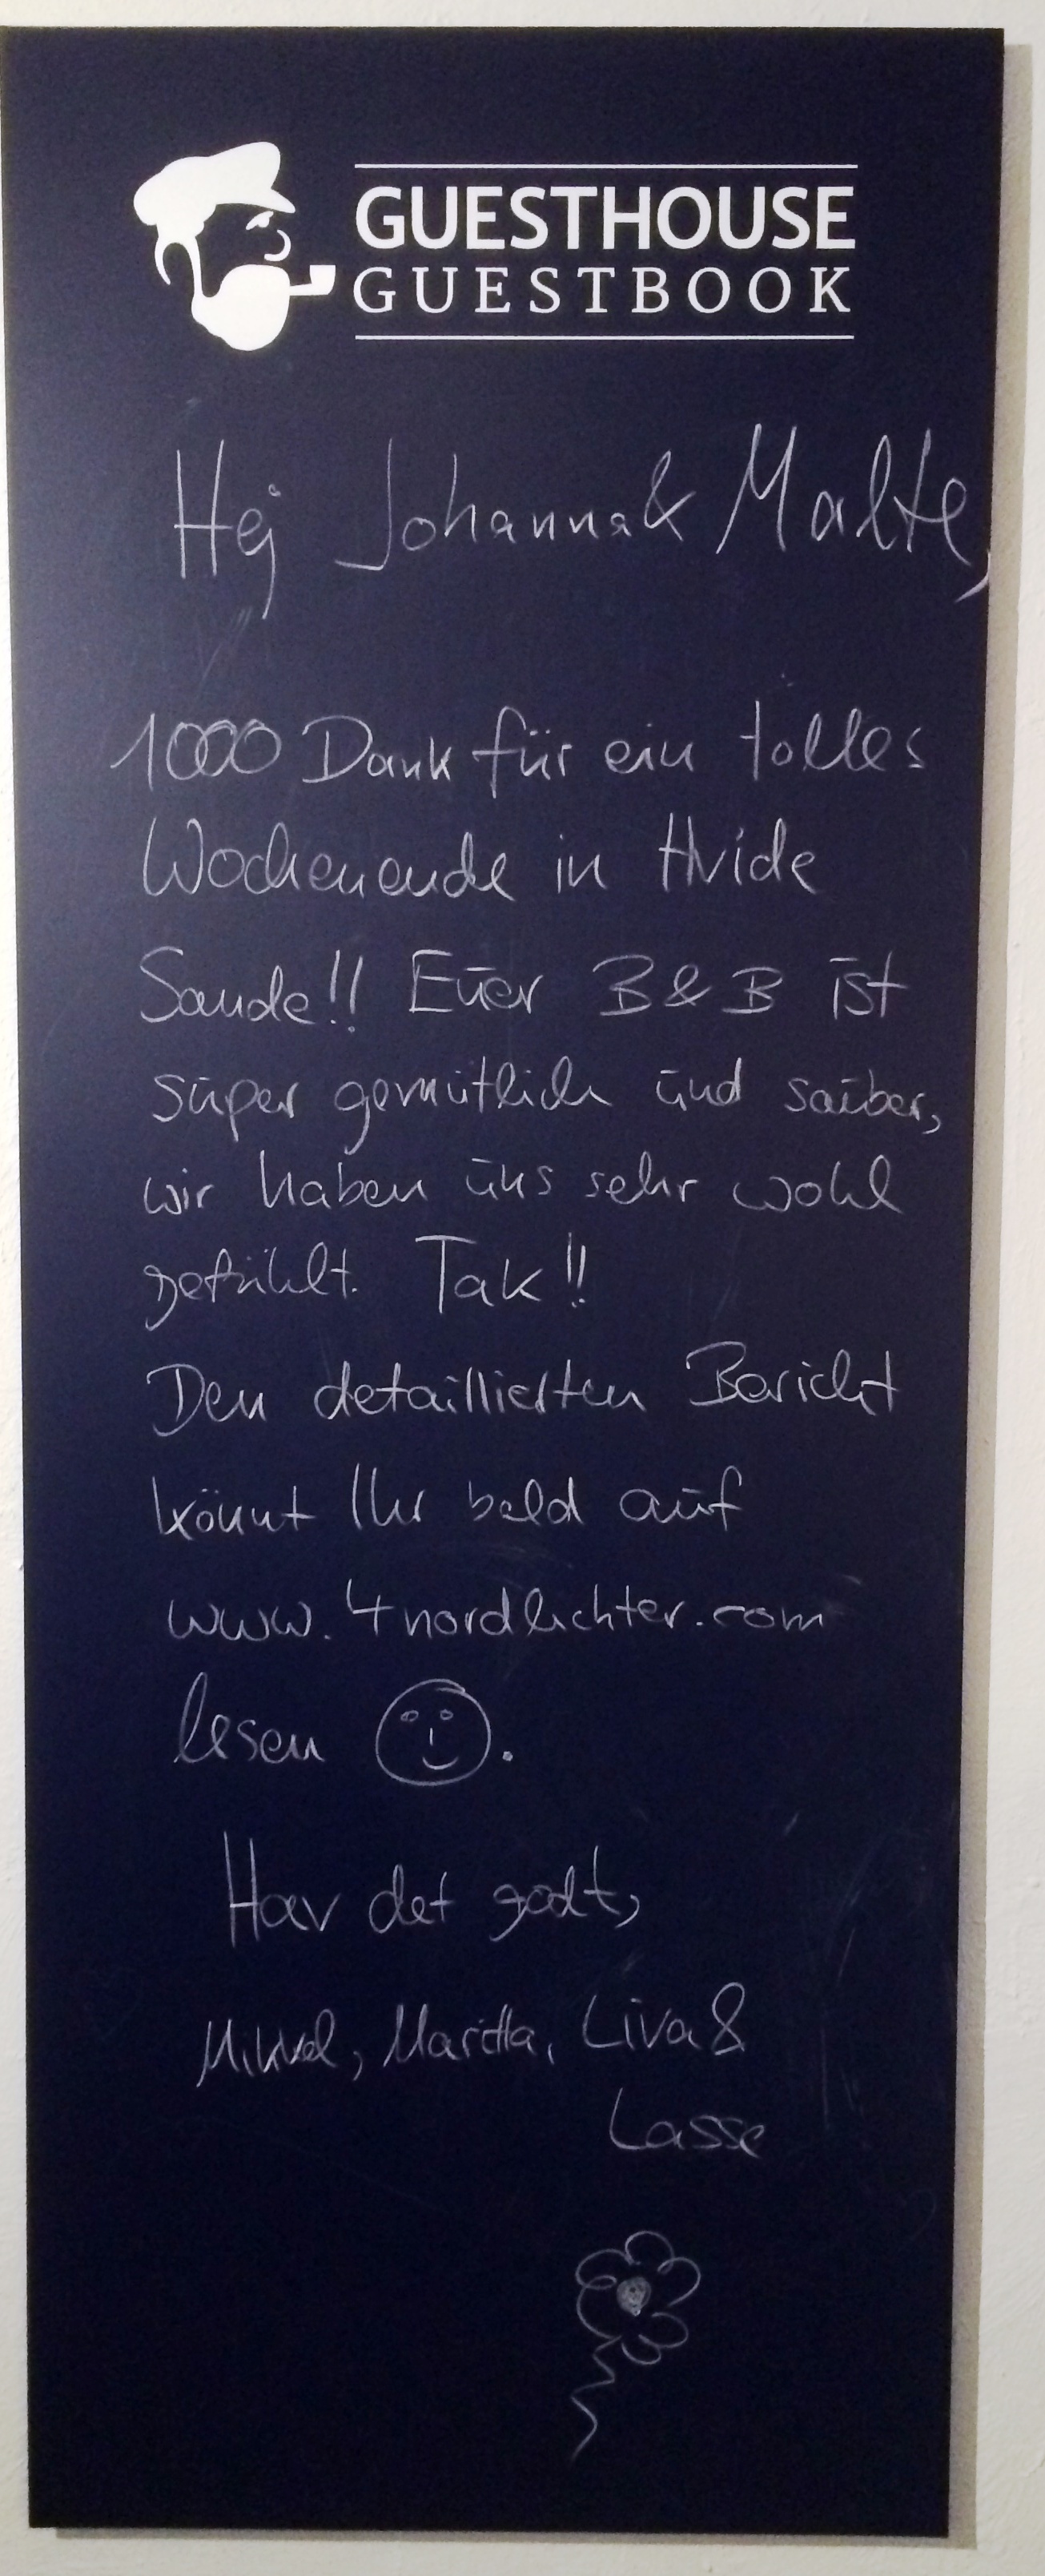 GUESTHOUSE
GUESTBOOK
Hej Johanna & Malte,
1000 Dank für ein tolles
Wochenende in Hvide
Sande!! Euer B & B ist
super gemütlich und sauber,
wir haben uns sehr wohl
gefühlt. Tak!!
Den detaillierten Bericht
könnt Ihr bald auf
www.4nordlichter.com
lesen
Hav det godt,
Mikkel, Liva &
Lasse